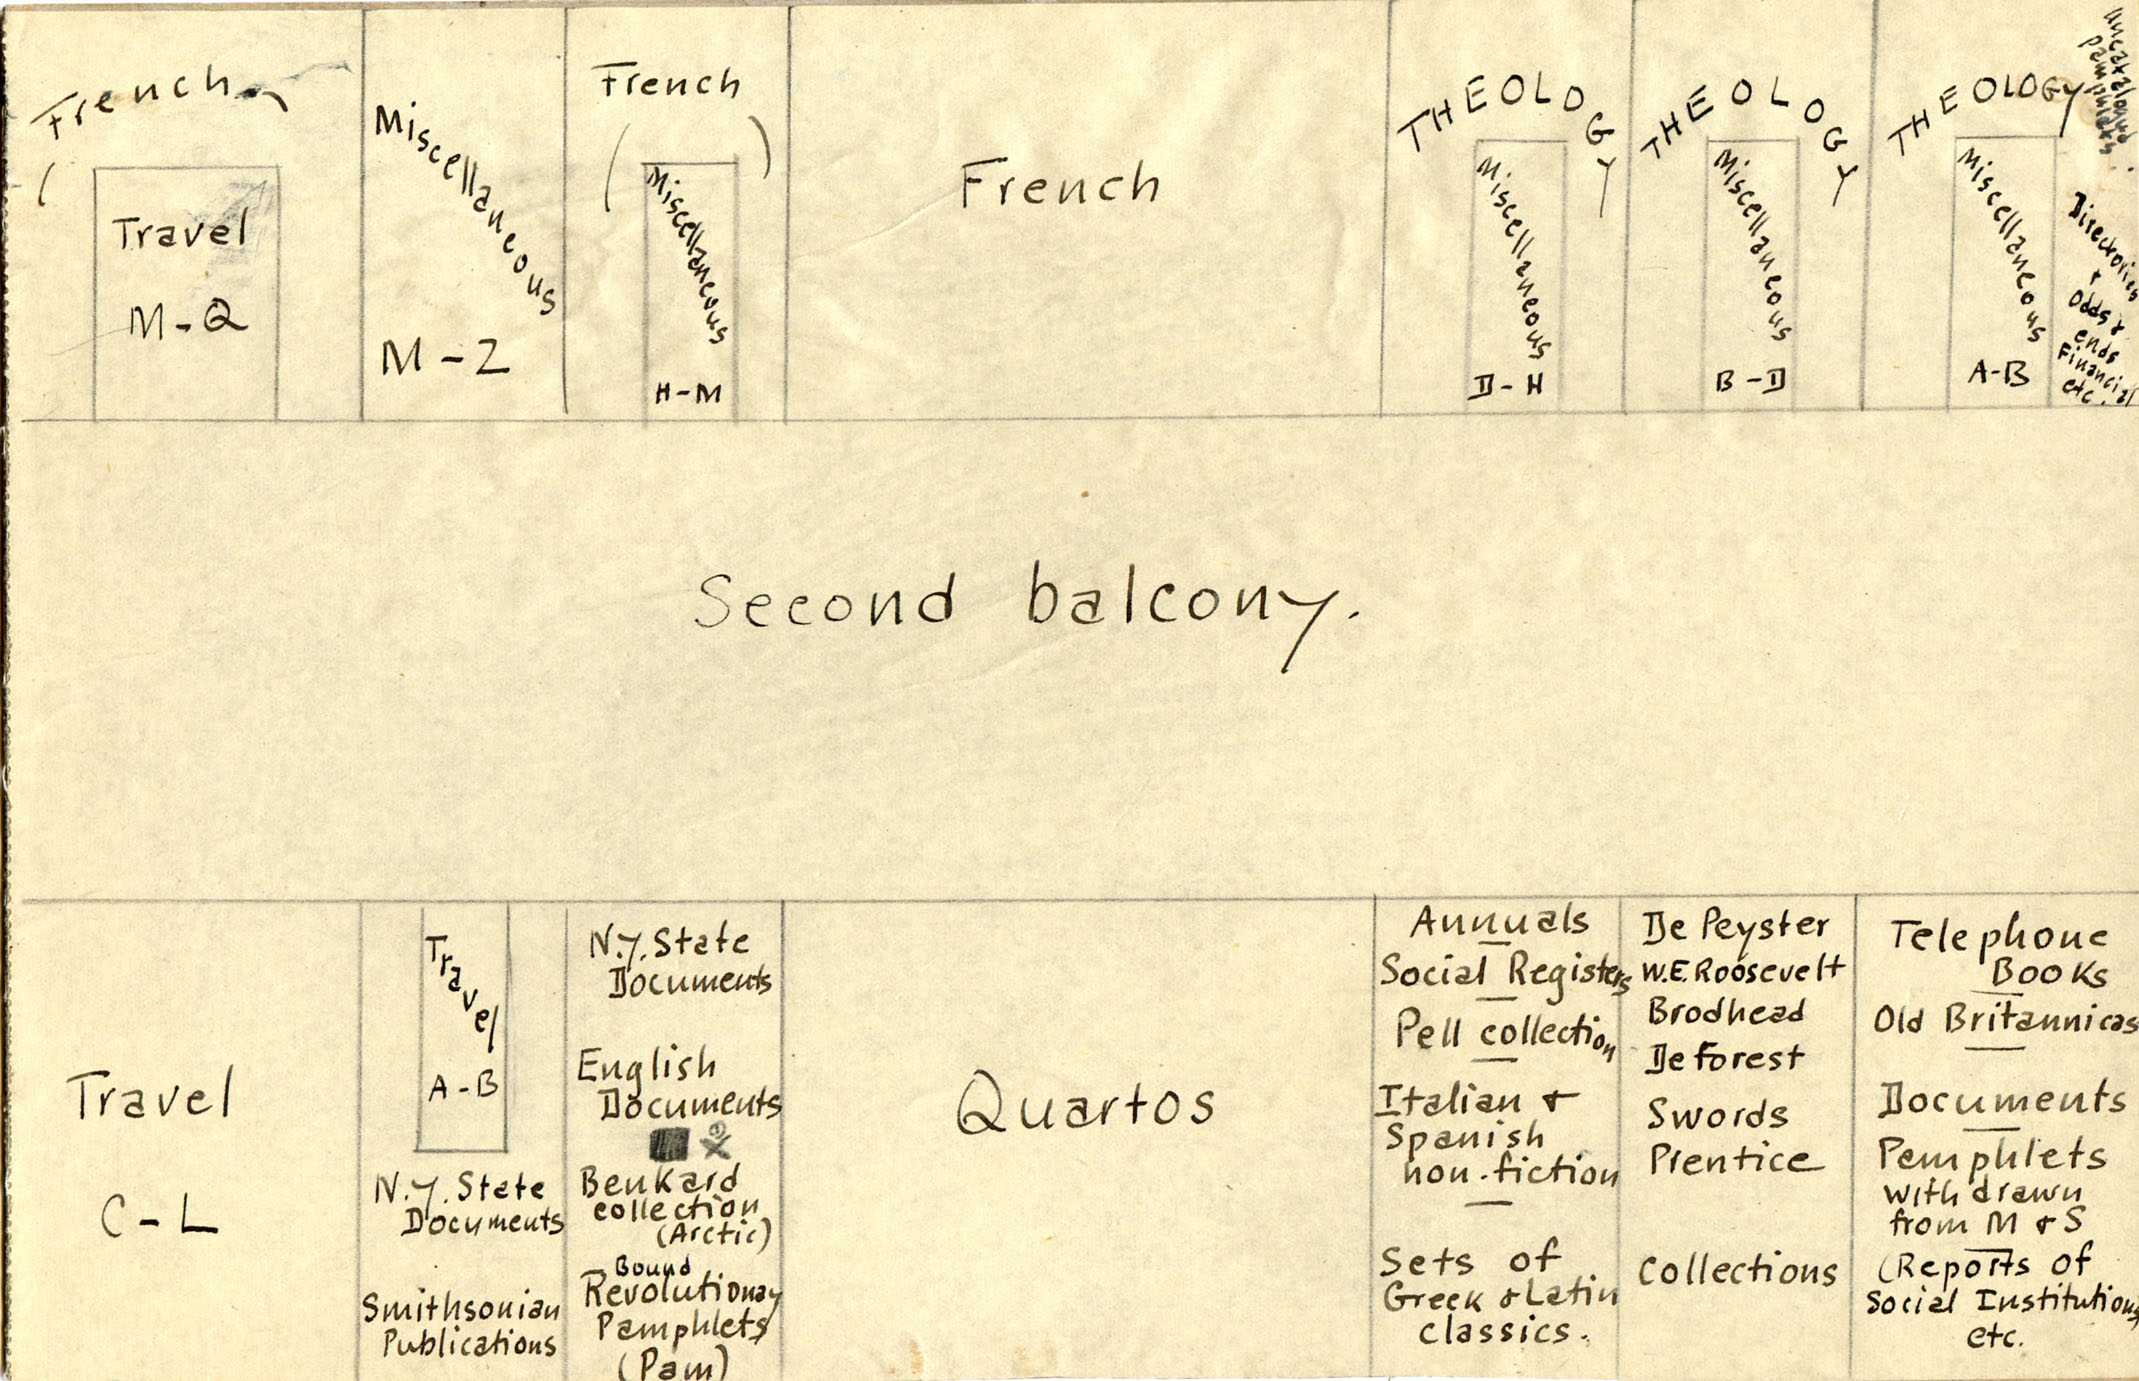 French
Travel
M-Q
Miscellaneous
M-Z
French
Miscellaneous
H-M
French
THEOLOGY
Miscellaneous
D-H
THEOLOGY
Miscellaneous
B-D
THEOLOGY
Miscellaneous
A-B
uncatalogued
pamphlets.
Directories
+
Odds &
ends
Financial
etc.
Second balcony.
Travel
C-L
Travel
A-B
N.Y. State
Documents
Smithsonian
Publications
N.Y. State
Documents
English
Documents
Benkard
collection
(Arctic)
Bound
Revolutionay
Pamphlets
(Pam)
Quartos
Annuals
Social Registers
Pell collection
Italian &
Spanish
non-fiction
Sets of
Greek & Latin
classics.
De Peyster
W.E. Roosevelt
Brodhead
De Forest
Swords
Prentice
Collections
Telephone
Books
Old Britannicas
Documents
Pamphlets
withdrawn
from M & S
(Reports of
Social Institutions
etc.